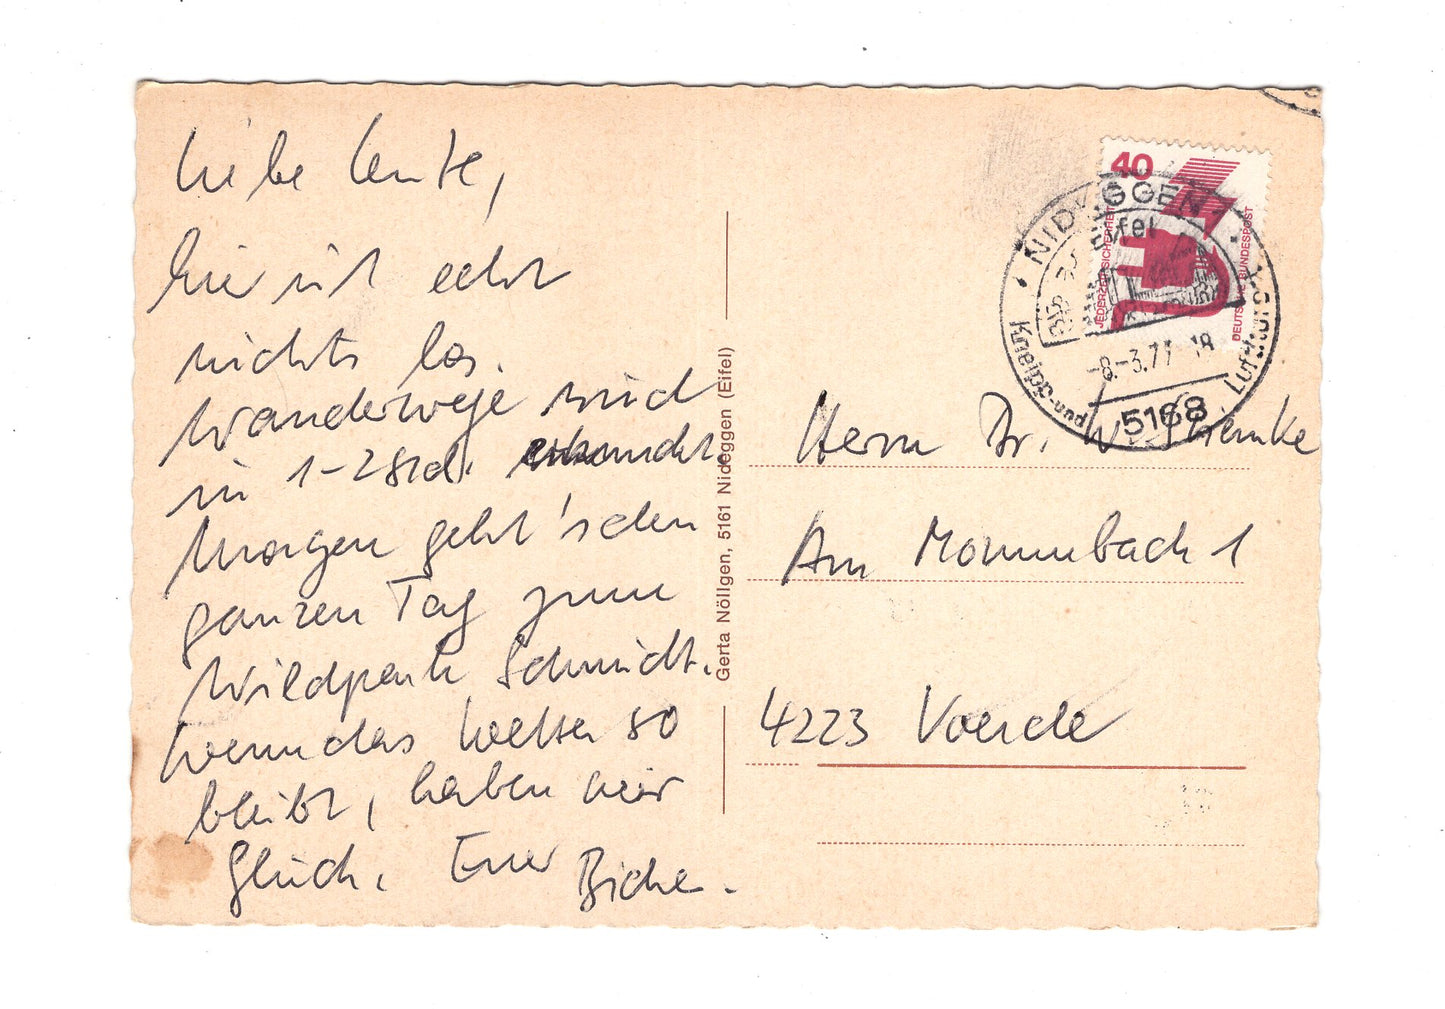 Liebe Leute,
hier ist echt
nichts los.
Wanderwege sind
in 1-2 Std. erkundet
Morgen geht's den
ganzen Tag zum
Wildpark Schmidt.
Wenn das Wetter so
bleibt, haben wir
Glück. Euer
Gerta Nöllgen, 5161 Nideggen (Eifel)
40
JEDERZEIT SICHERHEIT
DEUTSCHE BUNDESPOST
NIDEGGEN
Eifel
-8.-3.77-18
Kneipp-und Luftkurort
5168
Herrn Dr. W.
Am Mommbach 1
4223 Voerde